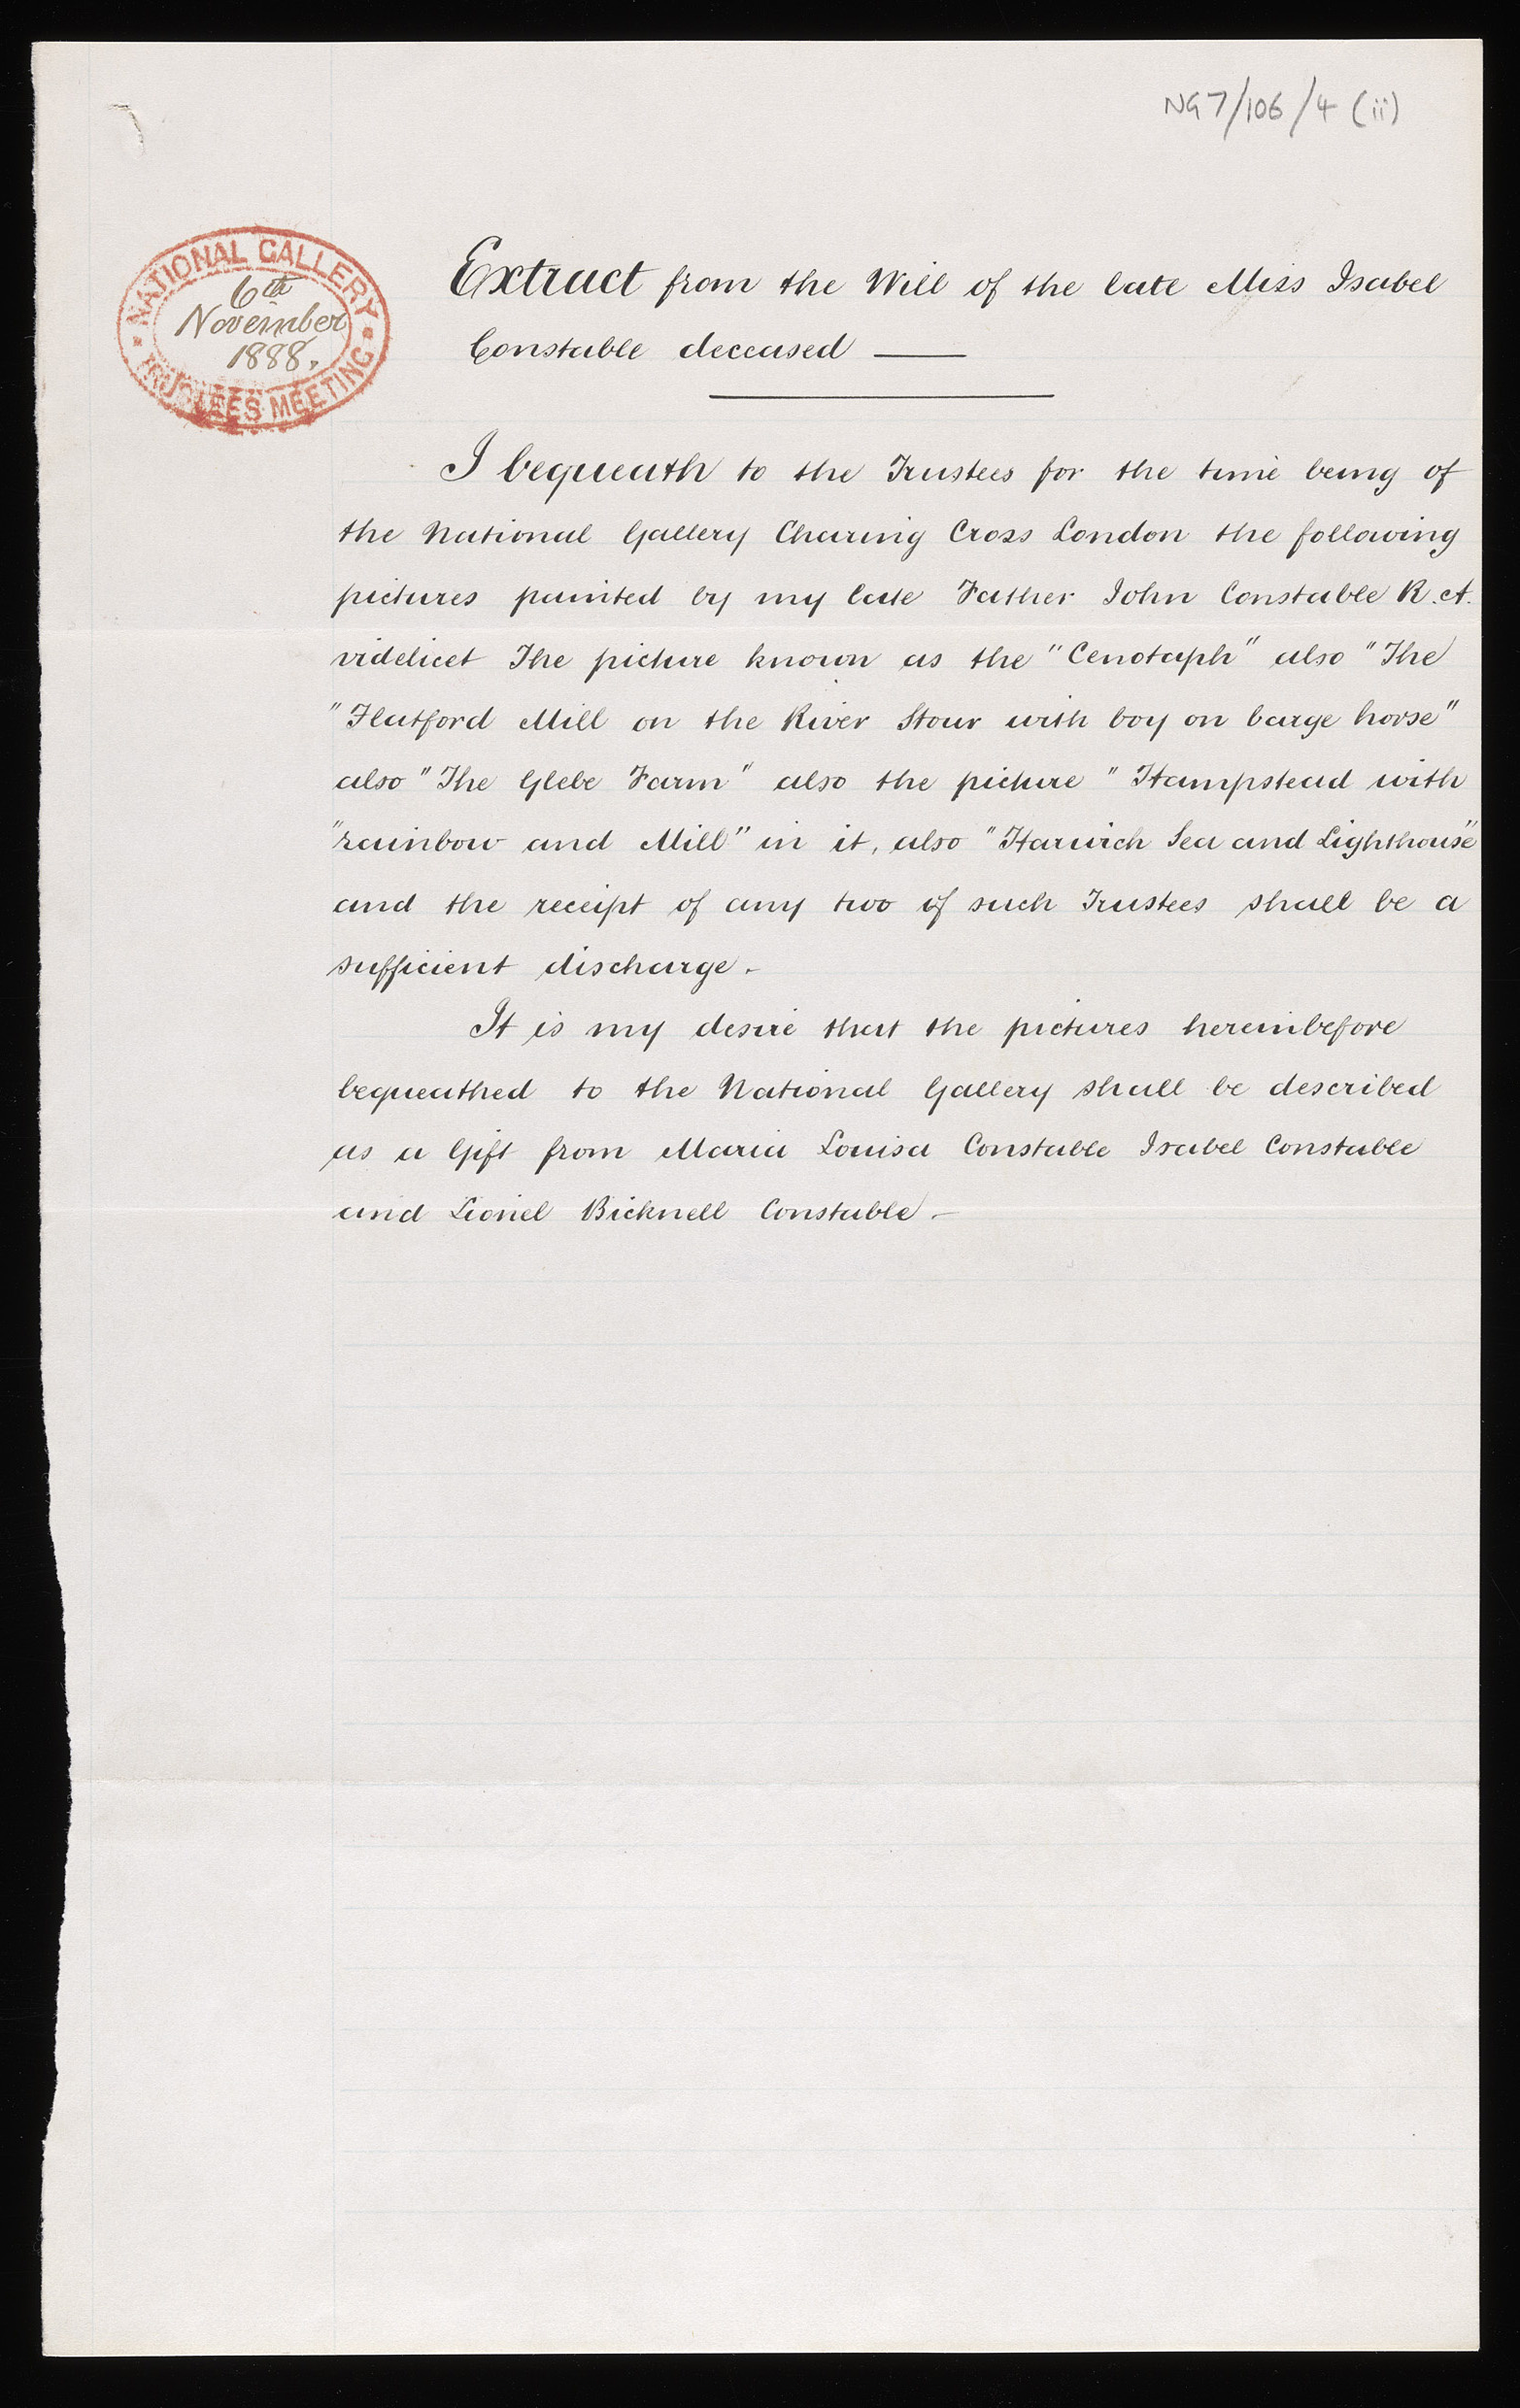 NG7/106/4 (ii)
NATIONAL GALLERY
6th
November
1888.
TRUSTEES MEETING
Extract from the Will of the late Miss Isabel
Constable deceased —
I bequeath to the Trustees for the time being of
the National Gallery Charing Cross London the following
pictures painted by my late Father John Constable R.A.
videlicet The picture known as the "Cenotaph" also "The
"Flatford Mill on the River Stour with boy on barge horse"
also "The Glebe Farm" also the picture "Hampstead with
"rainbow and Mill" in it, also "Harwich Sea and Lighthouse"
and the receipt of any two of such Trustees shall be a
sufficient discharge.-
It is my desire that the pictures hereinbefore
bequeathed to the National Gallery shall be described
as a Gift from Maria Louisa Constable Isabel Constable
and Lionel Bicknell Constable.-